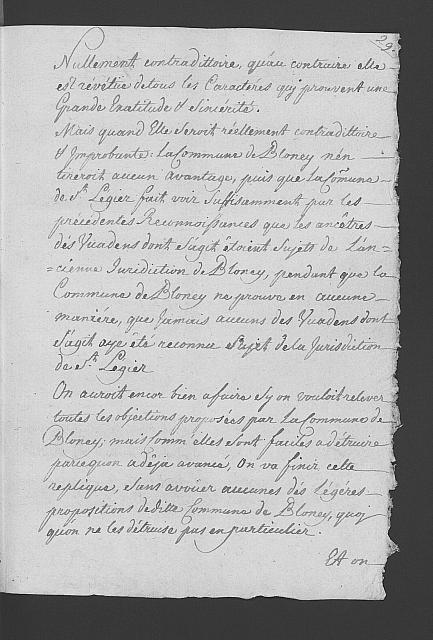 29.
Nullement contradittoire, qu'au contraire elle
est révétüe de tous les Caractéres qui prouvent une
Grande Exatitude & Sincérité.
Mais quand Elle seroit réellement contradittoire
& Improbante: La Commune de Bloney n'en
tireroit aucun avantage, puis que La Comune
de St. Légier fait voir suffisamment par les
précédentes Reconnoissances que les ancêtres
dés Vuadens dont s'agit étoient Sujets de L'an=
=cienne Juridiction de Bloney, pendant que la
Commune de Bloney ne prouve en aucune
maniére, que Jamais aucuns des Vuadens dont
s'agit aye été reconnu Sujet de la Jurisdiction
de St. Légier
On auroit encor bien a faire s'y on vouloit relever
toutes les objections proposées par La Commune de
Bloney; mais comm'elles sont faciles a détruire
parce quon a déja avancé, On va finir cette
replique, sans avoüer aucunes dés Légéres
propositions de ditte Commune de Bloney, quoy
qu'on ne les détruise pas en particulier.
Et on